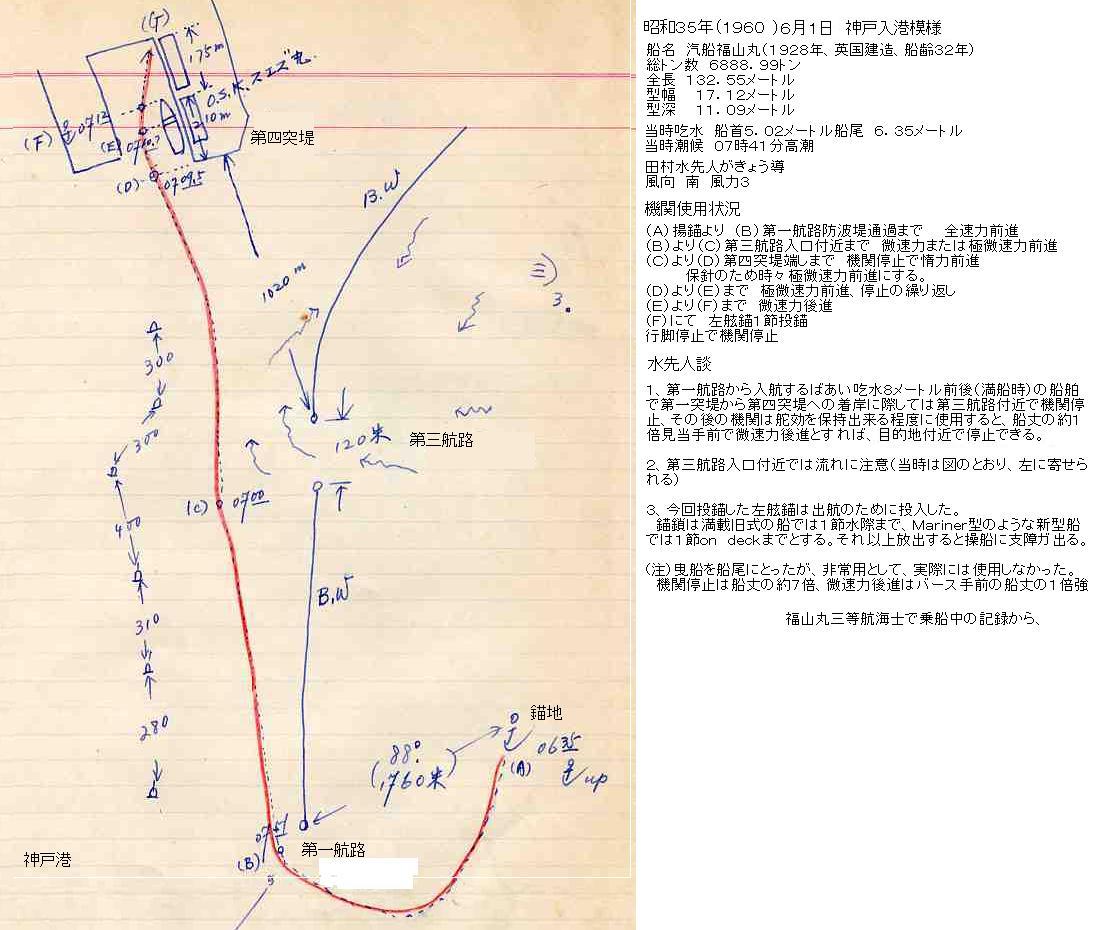 (G)
175m
O.S.K. スエズ丸
210m
第四突堤
(F)
0712
(E)
(D)
0709.5
B.W
1020m
3.
300
300
120米
第三航路
(C)
0700
400
310
B.W
280
錨地
0635
(A)
up
88°
1,760米
(B)
第一航路
神戸港
昭和35年(1960 )6月1日 神戸入港模様
船名 汽船福山丸(1928年、英国建造、船齢32年)
総トン数 6888.99トン
全長 132.55メートル
型幅 17.12メートル
型深 11.09メートル
当時吃水 船首5.02メートル船尾 6.35メートル
当時潮候 07時41分高潮
田村水先人がきょう導
風向 南 風力3
機関使用状況
(A)揚錨より (B)第一航路防波堤通過まで 全速力前進
(B)より(C)第三航路入口付近まで 微速力または極微速力前進
(C)より(D)第四突堤端しまで 機関停止で惰力前進
保針のため時々極微速力前進にする。
(D)より(E)まで 極微速力前進、停止の繰り返し
(E)より(F)まで 微速力後進
(F)にて 左舷錨1節投錨
行脚停止で機関停止
水先人談
1、第一航路から入航するばあい吃水8メートル前後(満船時)の船舶
で第一突堤から第四突堤への着岸に際しては第三航路付近で機関停
止、その後の機関は舵効を保持出来る程度に使用すると、船丈の約1
倍見当手前で微速力後進とすれば、目的地付近で停止できる。
2、第三航路入口付近では流れに注意(当時は図のとおり、左に寄せら
れる)
3、今回投錨した左舷錨は出航のために投入した。
錨鎖は満載旧式の船では1節水際まで、Mariner型のような新型船
では1節on deckまでとする。それ以上放出すると操船に支障ガ出る。
(注)曳船を船尾にとったが、非常用として、実際には使用しなかった。
機関停止は船丈の約7倍、微速力後進はバース手前の船丈の1倍強
福山丸三等航海士で乗船中の記録から、